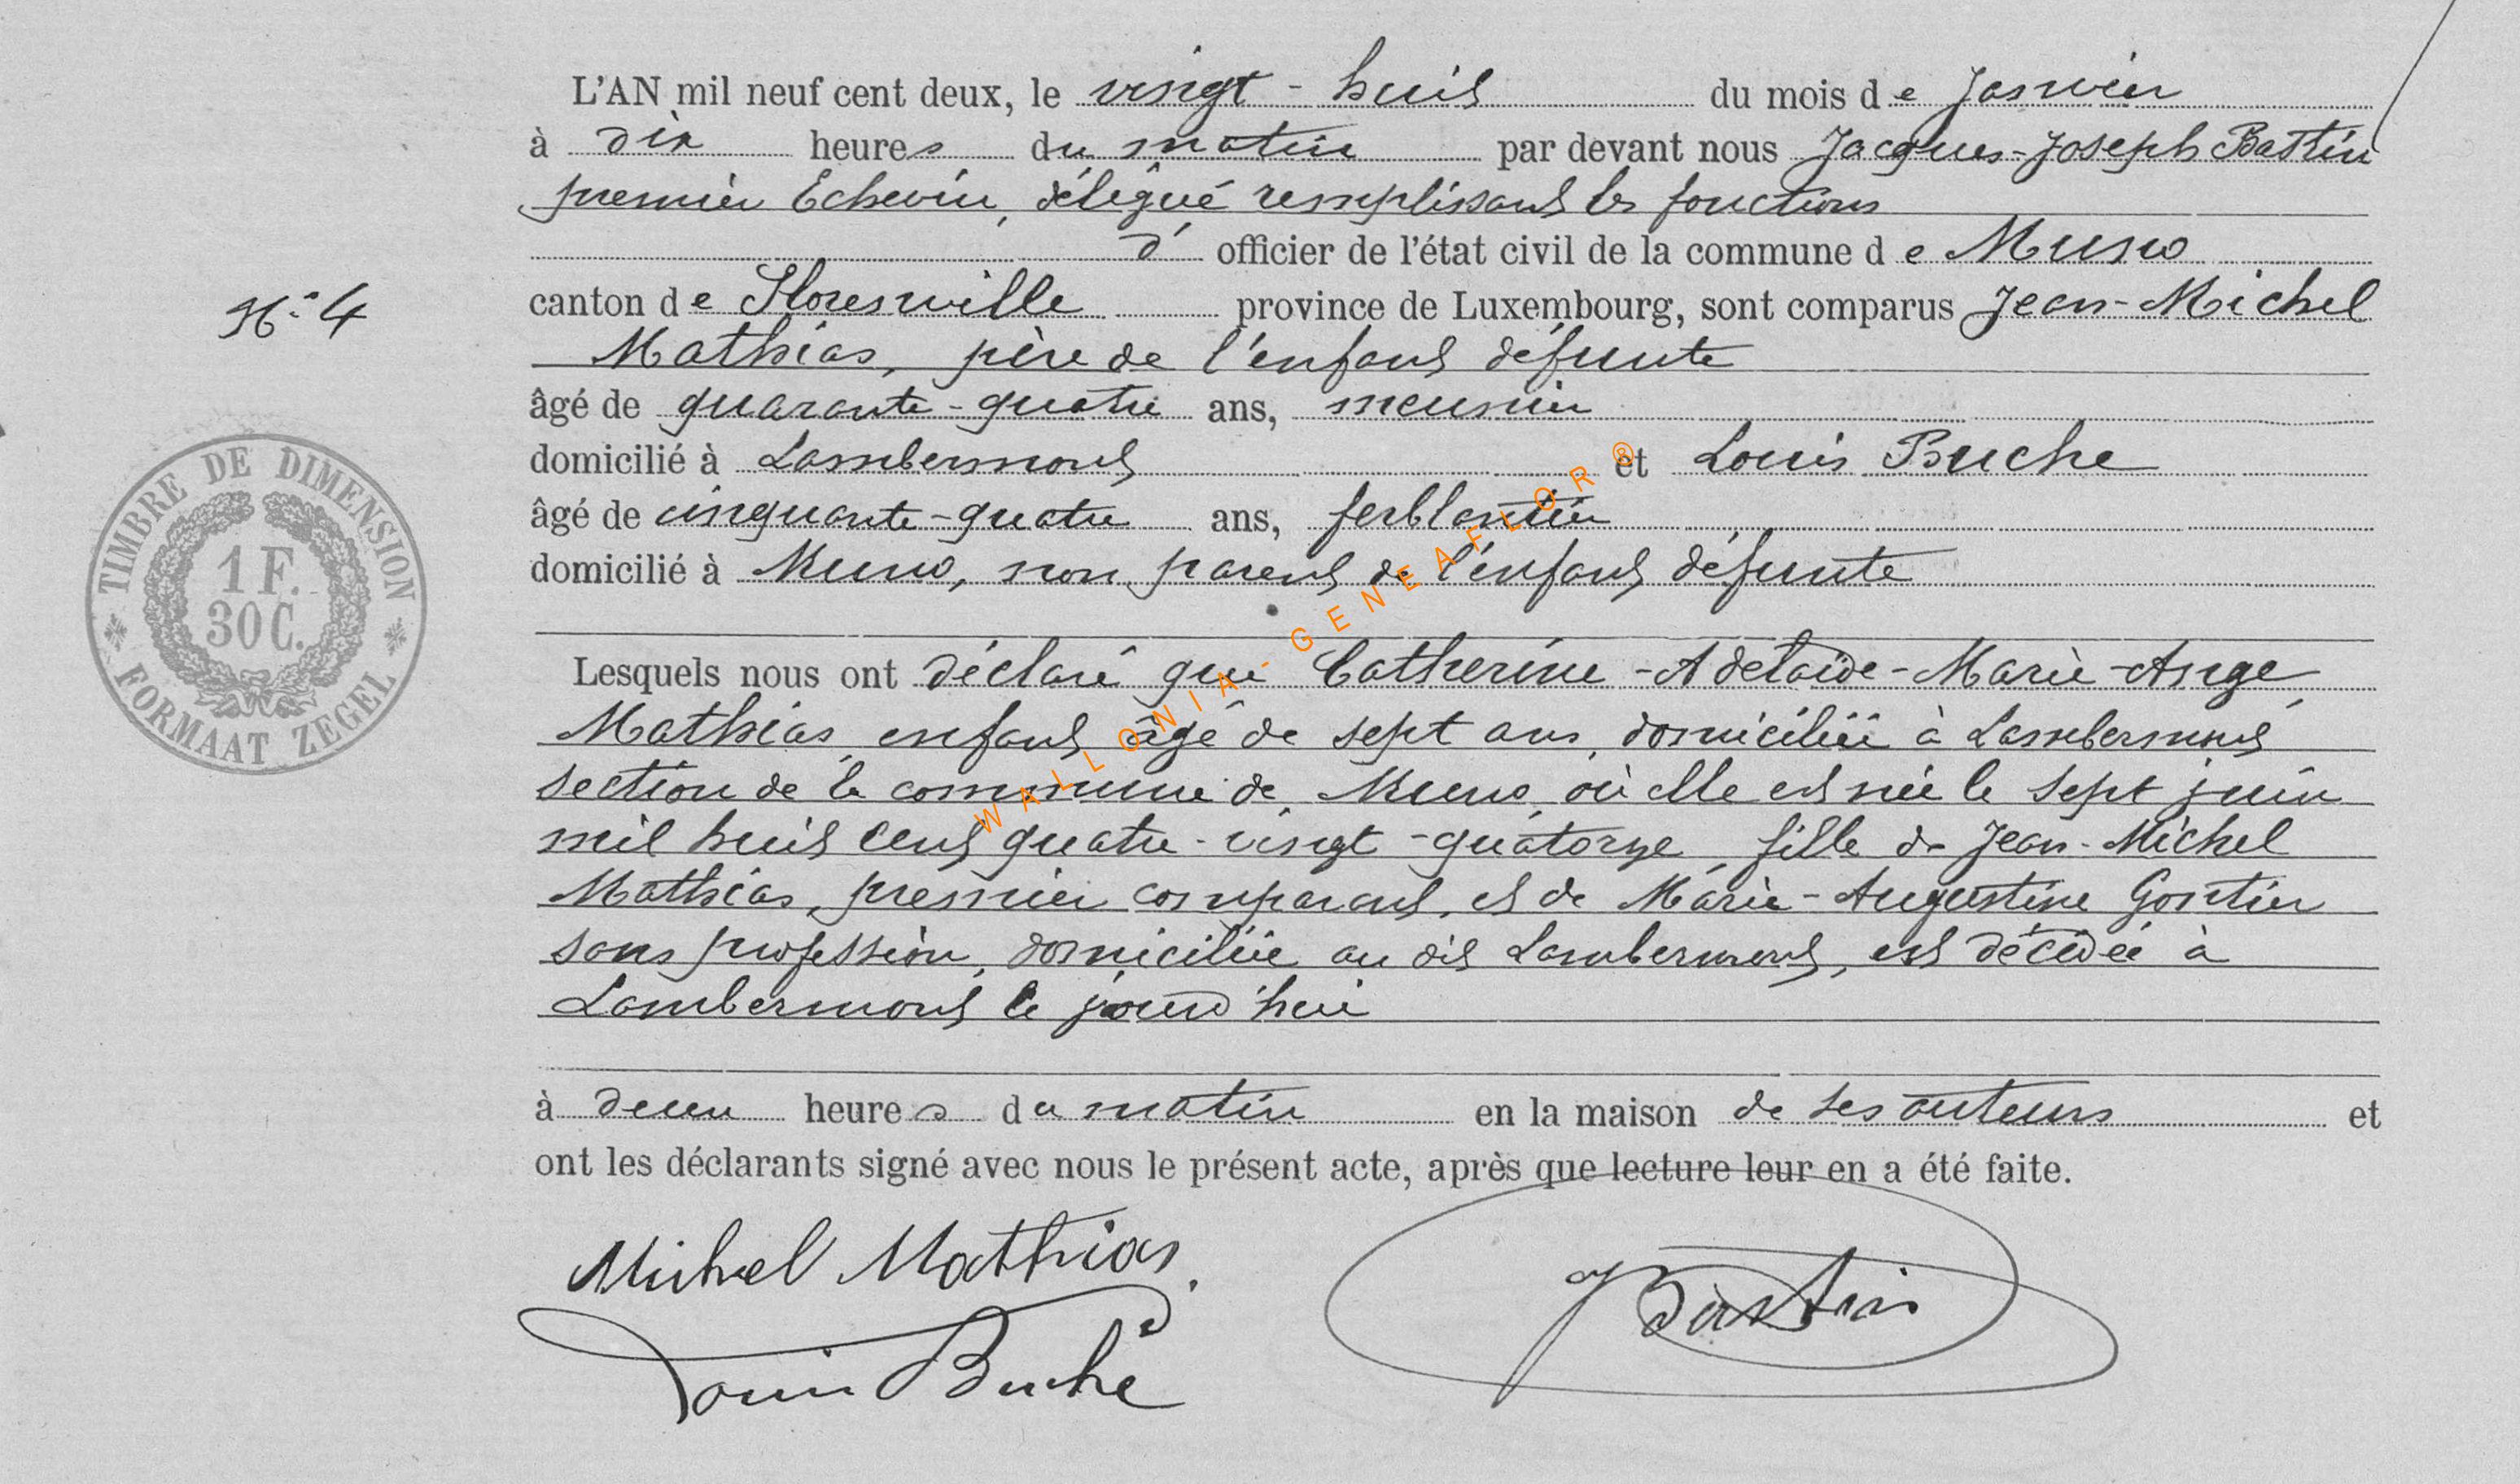 L'AN mil neuf cent deux, le vingt - huit du mois de Janvier
à dix heures du matin par devant nous Jacques-Joseph Bastin
premier Echevin, délégué remplissant les fonctions
d' officier de l'état civil de la commune de Muno
N° 4
canton de Florenville province de Luxembourg, sont comparus Jean-Michel
Mathias, père de l'enfant défunte
âgé de quarante-quatre ans, meunier
domicilié à Lambermont et Louis Buche
âgé de cinquante-quatre ans, ferblantier
domicilié à Muno, non parent de l'enfant défunte
TIMBRE DE DIMENSION
1 F.
30 C.
FORMAAT ZEGEL
Lesquels nous ont déclaré que Catherine-Adelaïde-Marie-Ange
Mathias, enfant âgé de sept ans, domiciliée à Lambermont
section de la commune de Muno, où elle est née le sept juin
mil huit cent quatre-vingt-quatorze, fille de Jean-Michel
Mathias, premier comparant, et de Marie-Augustine Gontier
sans profession, domiciliée au dit Lambermont, est décédée à
Lambermont le jourd'hui
à deux heures du matin en la maison de ses auteurs et
ont les déclarants signé avec nous le présent acte, après que lecture leur en a été faite.
Michel Mathias.
JBastin
Louis Buche
WALLONIA - GENEAFLOR ®